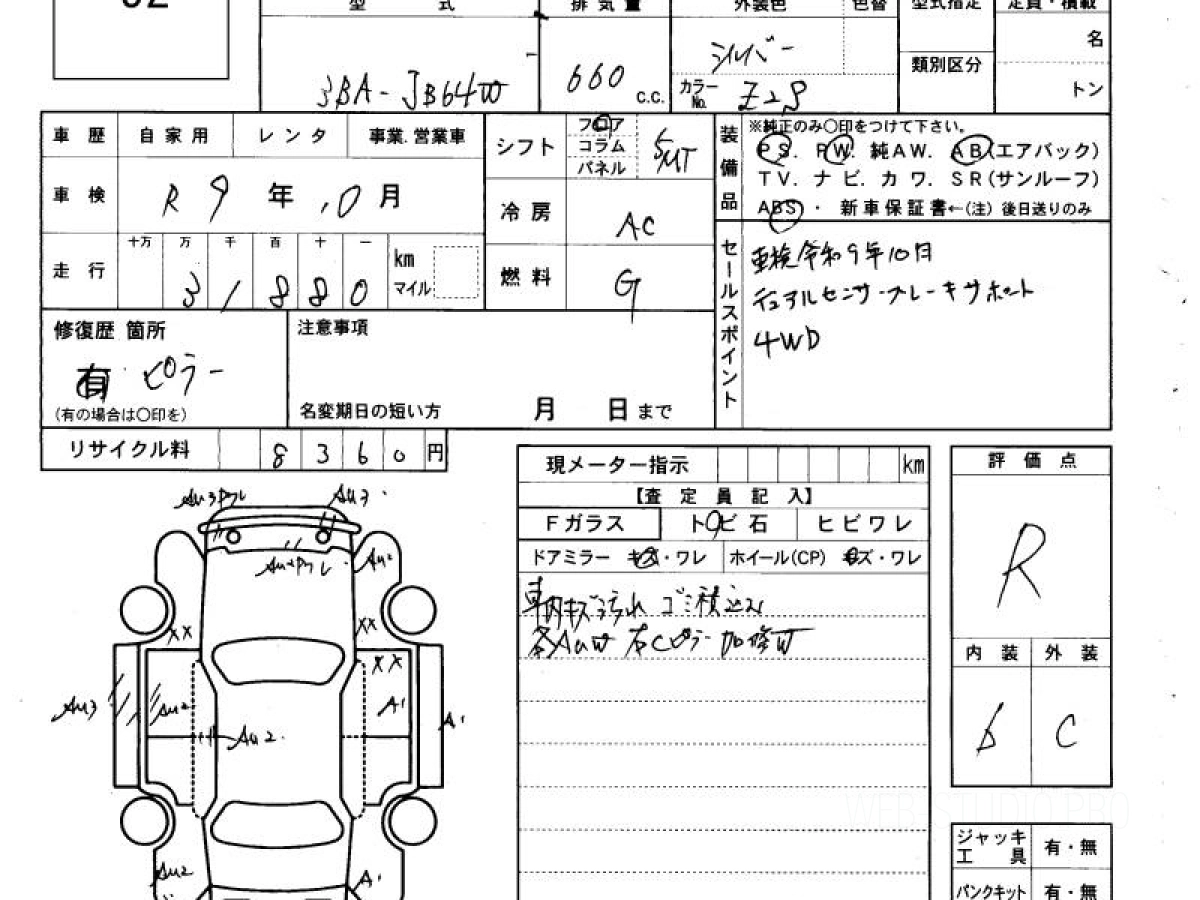 型式 排気量 外装色 色替 型式指定 定員・積載
3BA-JB64W 660 C.C. シルバー カラーNo. Z2S 類別区分 名 トン
車歴 自家用 レンタ 事業.営業車 シフト フロア コラム パネル 5MT
装備品 ※純正のみ○印をつけて下さい。
PS. PW. 純AW. AB(エアバック)
TV. ナビ. カワ. SR(サンルーフ)
ABS ・ 新車保証書←(注) 後日送りのみ
車検 R9年10月
冷房 AC
走行 十万 万 千 百 十 一 km マイル
31880
燃料 G
セールスポイント
車検令和9年10月
デュアルセンサーブレーキサポート
4WD
修復歴 箇所
有 ピラー
(有の場合は○印を)
注意事項
名変期日の短い方 月 日 まで
リサイクル料 8360円
現メーター指示 km
【査定員記入】
Fガラス トビ石 ヒビワレ
ドアミラー キズ・ワレ ホイール(CP) キズ・ワレ
車内キズ汚れ ゴミ積込み
各AuW 右Cピラー加修W
評価点
R
内装 外装
D C
ジャッキ工具 有・無
パンクキット 有・無
Au3 Au3
Au2
XX XX
XX
Au3 Au2 A1 A1
Au2
Au2 A1
WEB STUDIO PRO